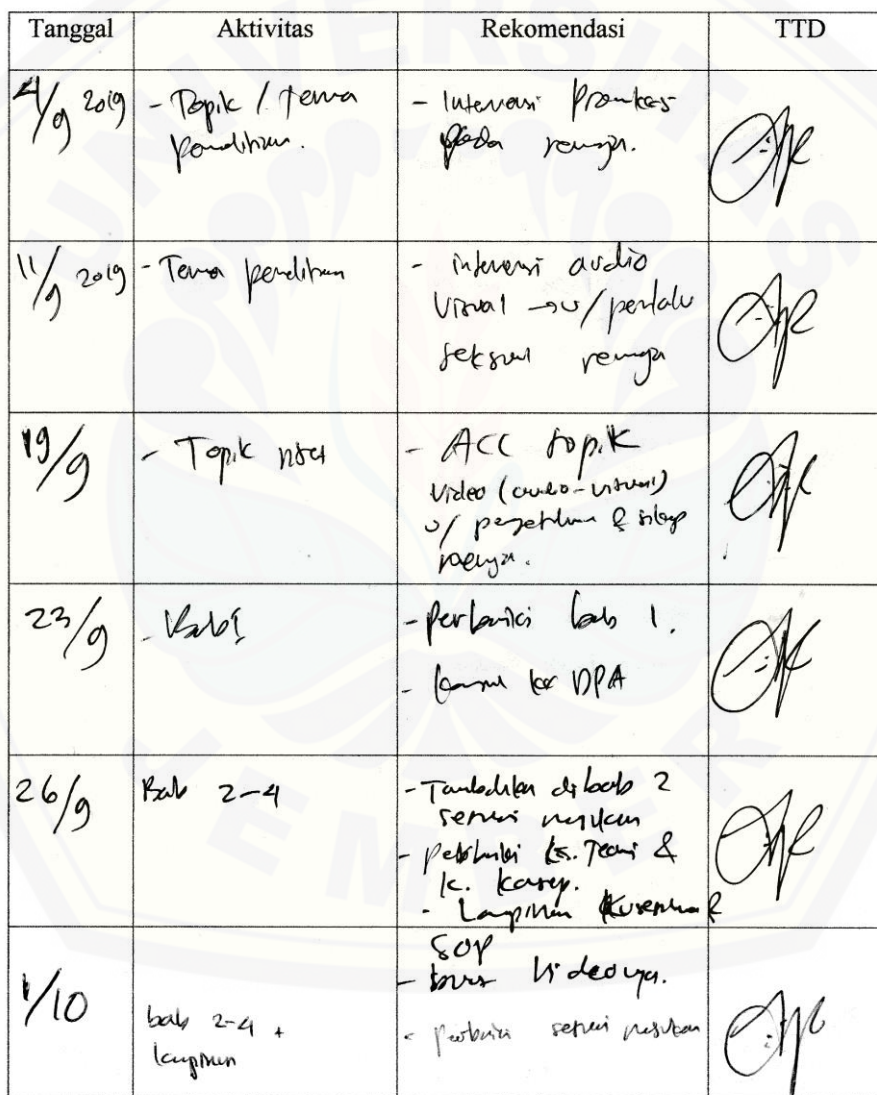 UNIVERSITAS
JEMBER
Tanggal Aktivitas Rekomendasi TTD
4/9 2019 - Topik / tema - Intervensi Promkes
penelitian. pada remaja.
11/9 2019 - Tema penelitian - intervensi audio
visual → u/ perilaku
seksual remaja
19/9 - Topik riset - ACC topik
video (audio-visual)
u/ pengetahuan & sikap
remaja.
23/9 - Bab 1 - perbaiki bab 1.
- konsul ke DPA
26/9 Bab 2-4 - Tambahkan di bab 2
sesuai masukan
- perbaiki k. Teori &
k. konsep.
- Lampiran Kuesioner &
SOP
1/10 - buat videonya.
bab 2-4 + - perbaiki sesuai masukan
lampiran